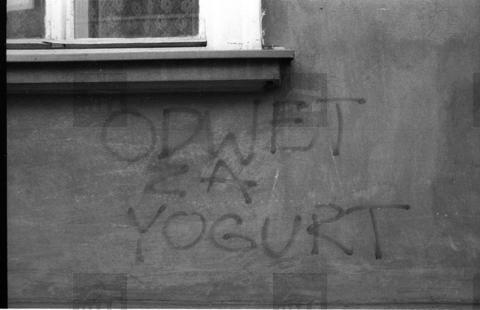 ODWET
ZA
YOGURT